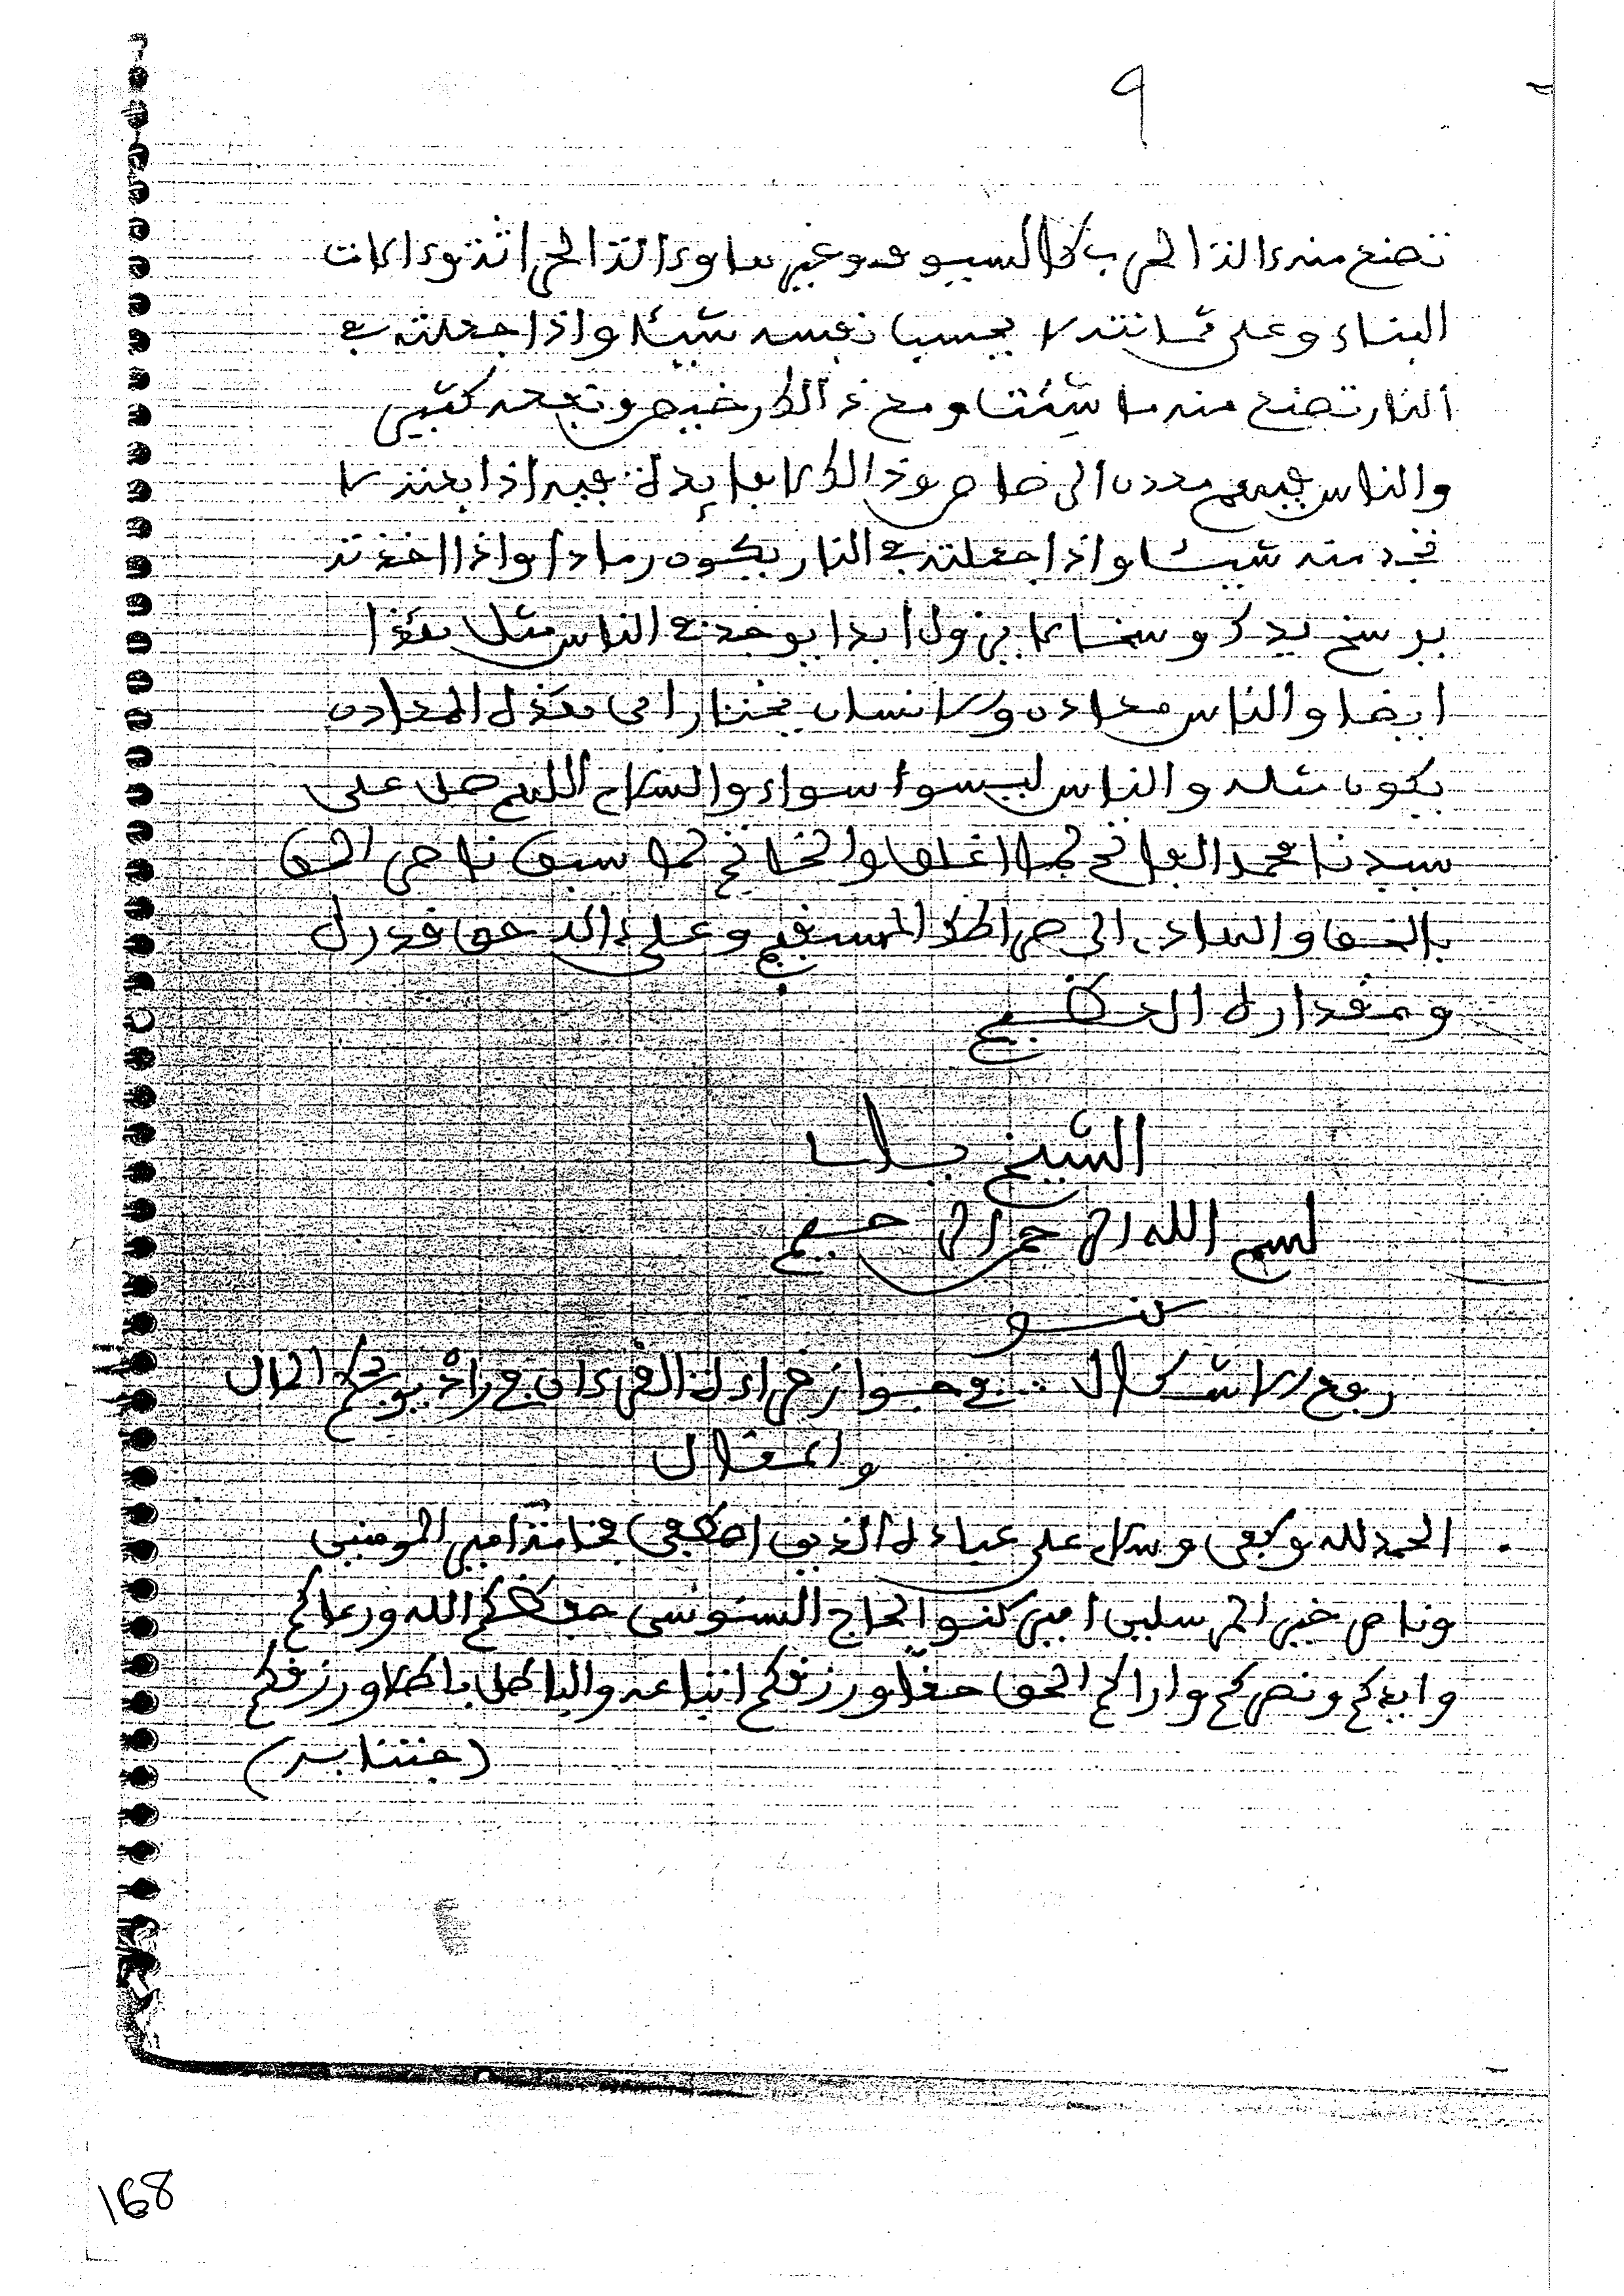 ٩
تصنع منه ءالة الحرب كالسيوف وغيرها وءالة الحراثة وءالات
البناء وعلى قمانته لا يحسب نفسه شيئا واذا جعلته في
النار تصنع منه ما شئت ومع ذالك رخيص ونفعه كثير
والناس فيهم معدن الى خاص وذالك لا فايدة فيه اذا بعته لا
تجد منه شيئا واذا جعلته في النار يكون رمادا واذا اخذته
يوسخ يدك وسخا لا يزول ابدا يوجد في الناس مثل هذا
ايضا والناس معادن والانسان يختار اي هذه المعادن
يكون مثله والناس ليسوا سواء والسلام اللهم صل على
سيدنا محمد الفاتح لما اغلق والخاتم لما سبق ناصر الحق
بالحق والهادي الى صراطك المستقيم وعلى ءاله حق قدره
ومقداره العظيم
الشيخ
بسم الله الرحمن الرحيم
كنو
رفع الاشكال .. في جواز قراءة القرءان في راديو بحكم الحال
والمقال
الحمد لله وكفى وسلام على عباده الذين اصطفى فخامة امير المومنين
وناصر خير المرسلين امير كنو الحاج السنوسي حفظكم الله ورعاكم
وايدكم ونصركم واراكم الحق حقا ورزقكم اتباعه والباطل باطلا ورزقكم
(جتنابه)
168